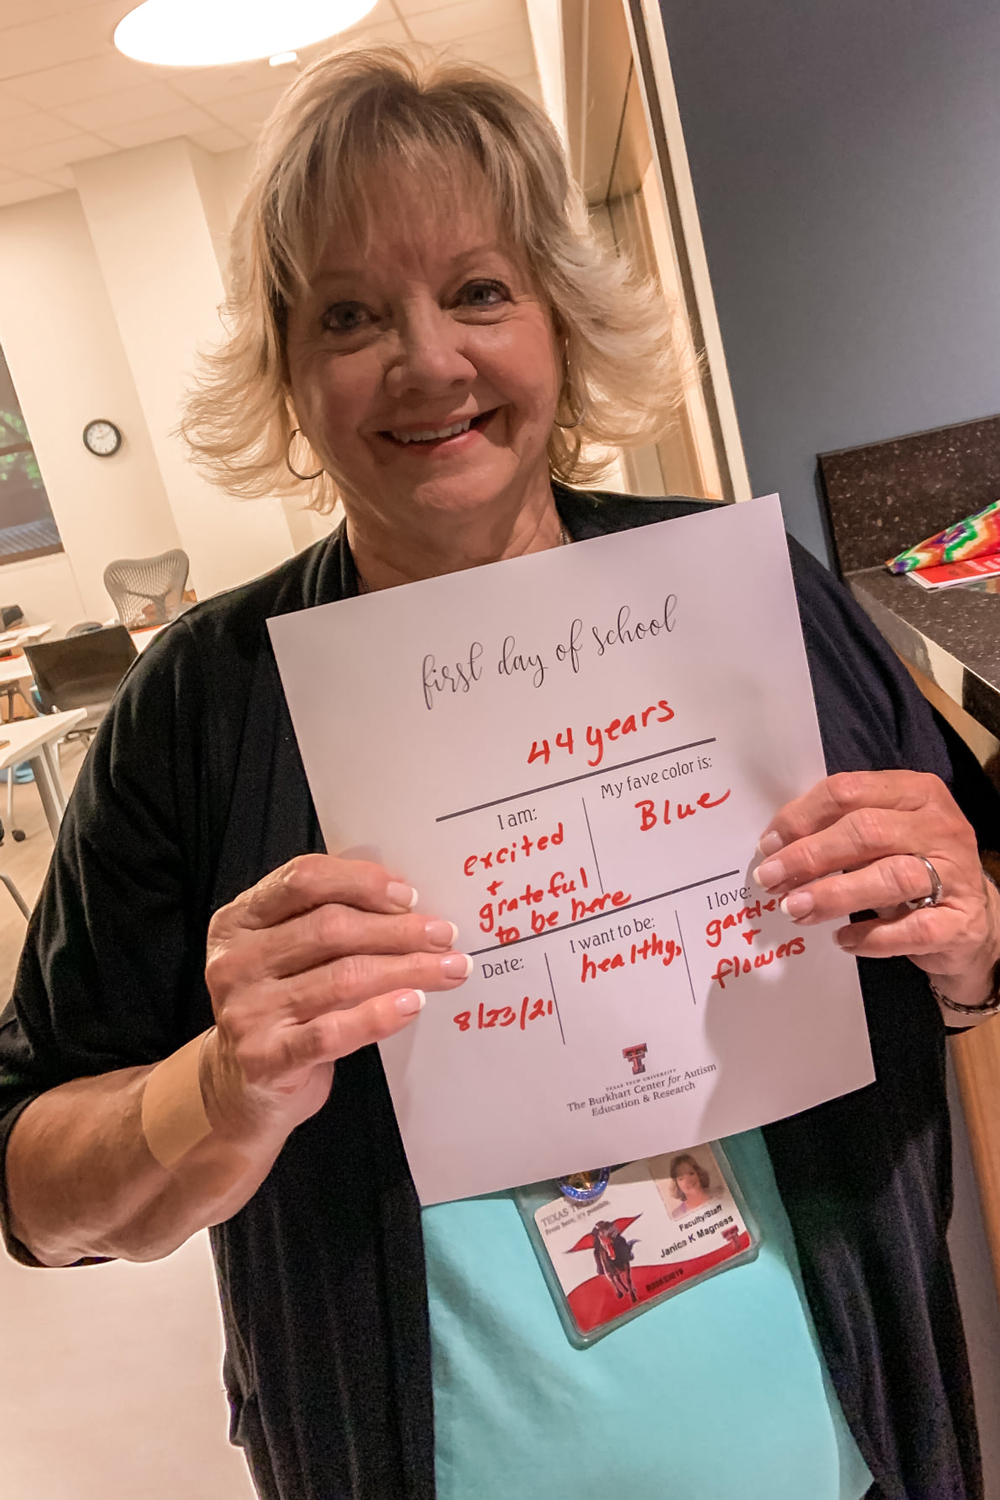 first day of school
44 years
I am:
excited
+
grateful
to be here
My fave color is:
Blue
Date:
8/23/21
I want to be:
healthy,
I love:
garden
+
flowers
TEXAS TECH UNIVERSITY
The Burkhart Center for Autism
Education & Research
TEXAS
From here, it's possible.
Faculty/Staff
Janice K Magness